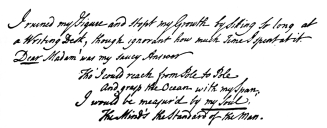 I ruined my Figure and stopt my Growth by Sitting so long at
a Writing Desk, though ignorant how much Time I spent at it
Dear Madam' was my saucy Answer
Tho' I could reach from Pole to Pole
and grasp the Ocean with my Span,
I would be measur'd by my Soul.
The Mind's the Standard of the Man.